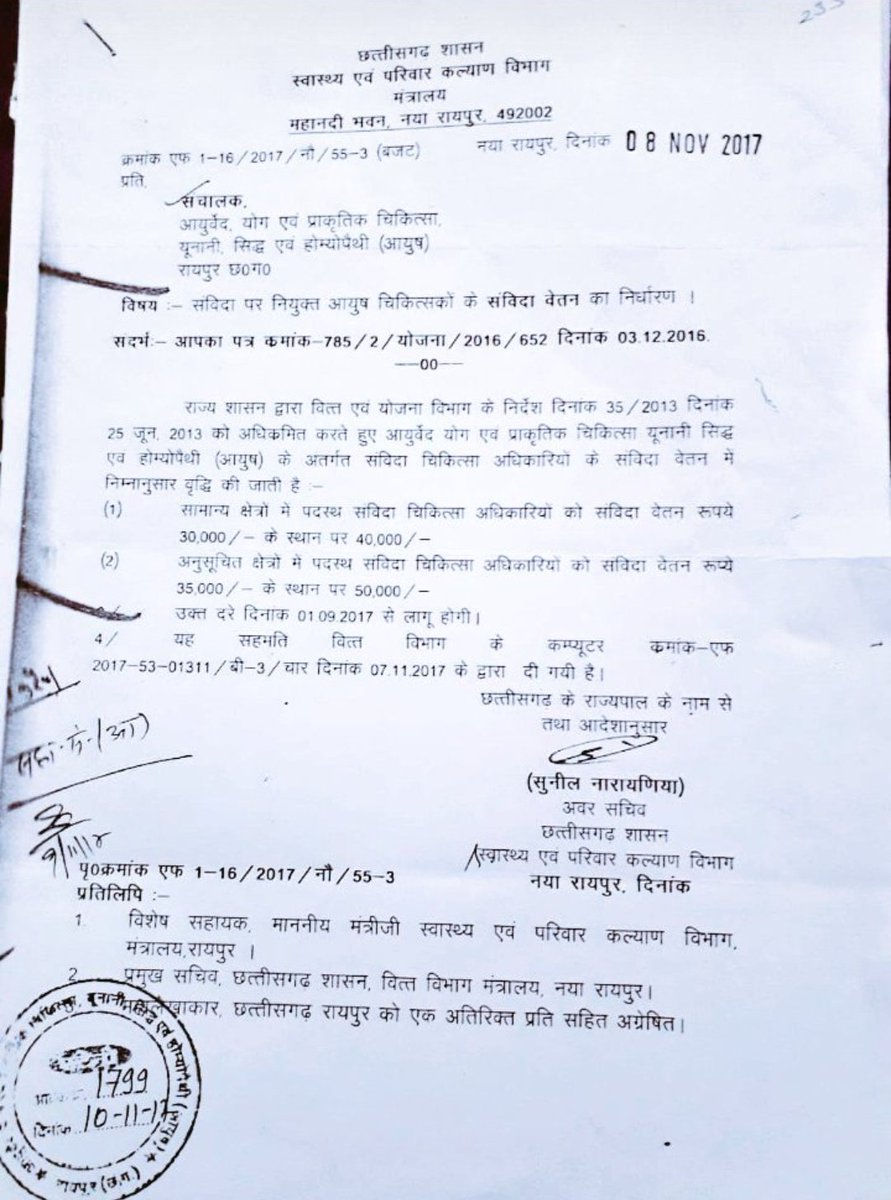 छत्तीसगढ शासन
स्वास्थ्य एवं परिवार कल्याण विभाग
मंत्रालय
महानदी भवन, नया रायपुर, 492002
क्रमांक एफ 1-16/2017/नौ/55-3 (बजट) नया रायपुर, दिनांक 08 NOV 2017
प्रति,
संचालक,
आयुर्वेद, योग एवं प्राकृतिक चिकित्सा,
यूनानी, सिद्ध एवं होम्योपैथी (आयुष)
रायपुर छ0ग0
विषय :- संविदा पर नियुक्त आयुष चिकित्सकों के संविदा वेतन का निर्धारण ।
संदर्भ:- आपका पत्र कमांक-785/2/योजना/2016/652 दिनांक 03.12.2016.
--00--
राज्य शासन द्वारा वित्त एवं योजना विभाग के निर्देश दिनांक 35/2013 दिनांक
25 जून, 2013 को अधिकमित करते हुए आयुर्वेद योग एवं प्राकृतिक चिकित्सा यूनानी सिद्ध
एवं होम्योपैथी (आयुष) के अतर्गत संविदा चिकित्सा अधिकारियों के संविदा वेतन में
निम्नानुसार वृद्धि की जाती है :-
(1) सामान्य क्षेत्रों में पदस्थ संविदा चिकित्सा अधिकारियों को संविदा वेतन रूपये
30,000/- के स्थान पर 40,000/-
(2) अनुसूचित क्षेत्रों में पदस्थ संविदा चिकित्सा अधिकारियों को संविदा वेतन रूपये
35,000/- के स्थान पर 50,000/-
उक्त दरे दिनांक 01.09.2017 से लागू होगी।
4/ यह सहमति वित्त विभाग के कम्प्यूटर कमांक-एफ
2017-53-01311/बी-3/चार दिनांक 07.11.2017 के द्वारा दी गयी है।
छत्तीसगढ के राज्यपाल के नाम से
तथा आदेशानुसार
(सुनील नारायणिया)
अवर सचिव
छत्तीसगढ शासन
स्वास्थ्य एवं परिवार कल्याण विभाग
नया रायपुर, दिनांक
पृ0क्रमांक एफ 1-16/2017/नौ/55-3
प्रतिलिपि :-
1. विशेष सहायक, माननीय मंत्रीजी स्वास्थ्य एवं परिवार कल्याण विभाग,
मंत्रालय,रायपुर ।
2. प्रमुख सचिव, छत्तीसगढ शासन, वित्त विभाग मंत्रालय, नया रायपुर।
छत्तीसगढ़ रायपुर को एक अतिरिक्त प्रति सहित अग्रेषित।
यूनानी, सिद्ध एवं होम्योपैथी (आयुष)
1799
दिनांक 10-11-17
रायपुर (छ.ग.)